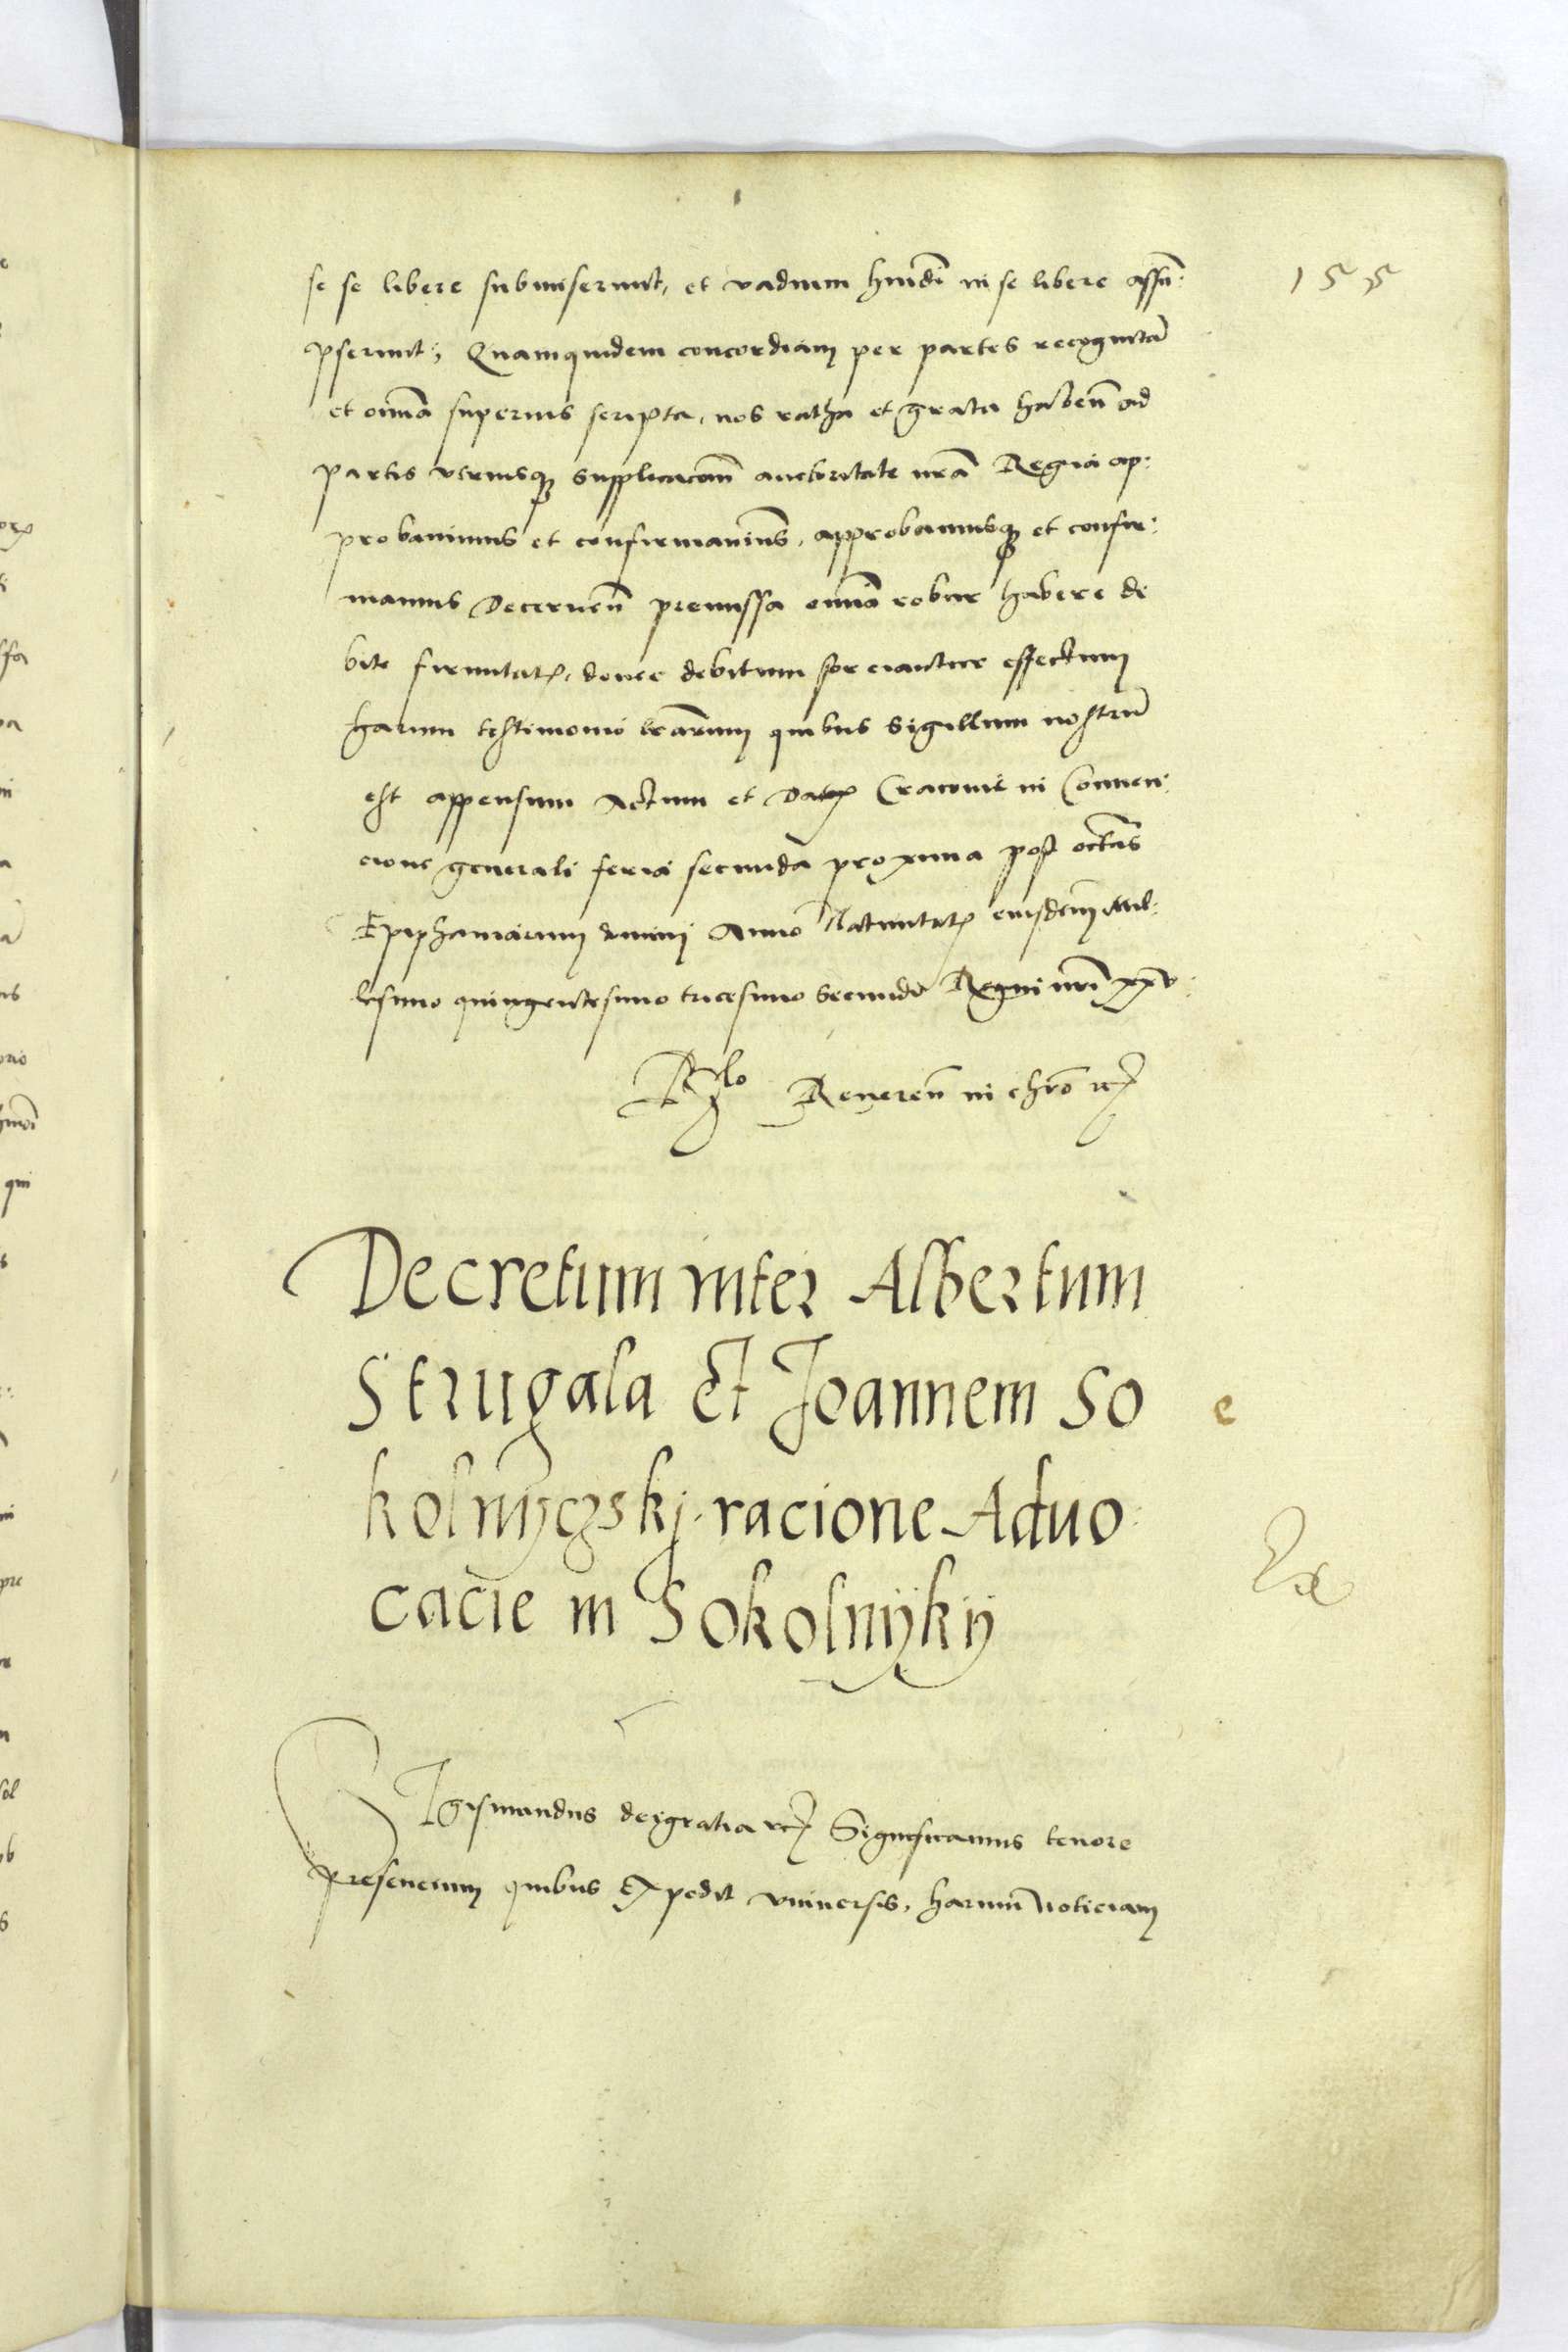 155
se se libere submiserunt, et vadium hmōi in se libere assū:
pserunt; Quamquidem concordiam per partes recognitā
et om̄ia superius scripta, nos ratha et grata haben̄ ad
partis vtriusq supplicacōn̄ auctoritate nr̄a Regia ap:
probauimus et confirmauim̄s, approbamusq et confir:
mamus Decernen̄ premissa om̄ia robur habere de
bite firmitat, donec debitum sorciantur effectum
harum testimonio lr̄arum quibus Sigillum nostrū
est appensum Actum et Dat Cracouie in Conuen:
cione generali feria secunda proxima post octās
Epiphaniarum domini Anno Natiuitat eiusdem Mil:
lesimo quingentesimo tricesimo Secundo Regni nr̄i xxv
Rlo Reueren̄ in chr̄o rc
Decretum inter Albertum
Strugala Et Joannem So
kolnyczskj racione Aduo:
cacie in Sokolnÿkÿ
Sigismundus dei gratia rc Significamus tenore
presencium quibus Expedit vniuersis, harum noticiam